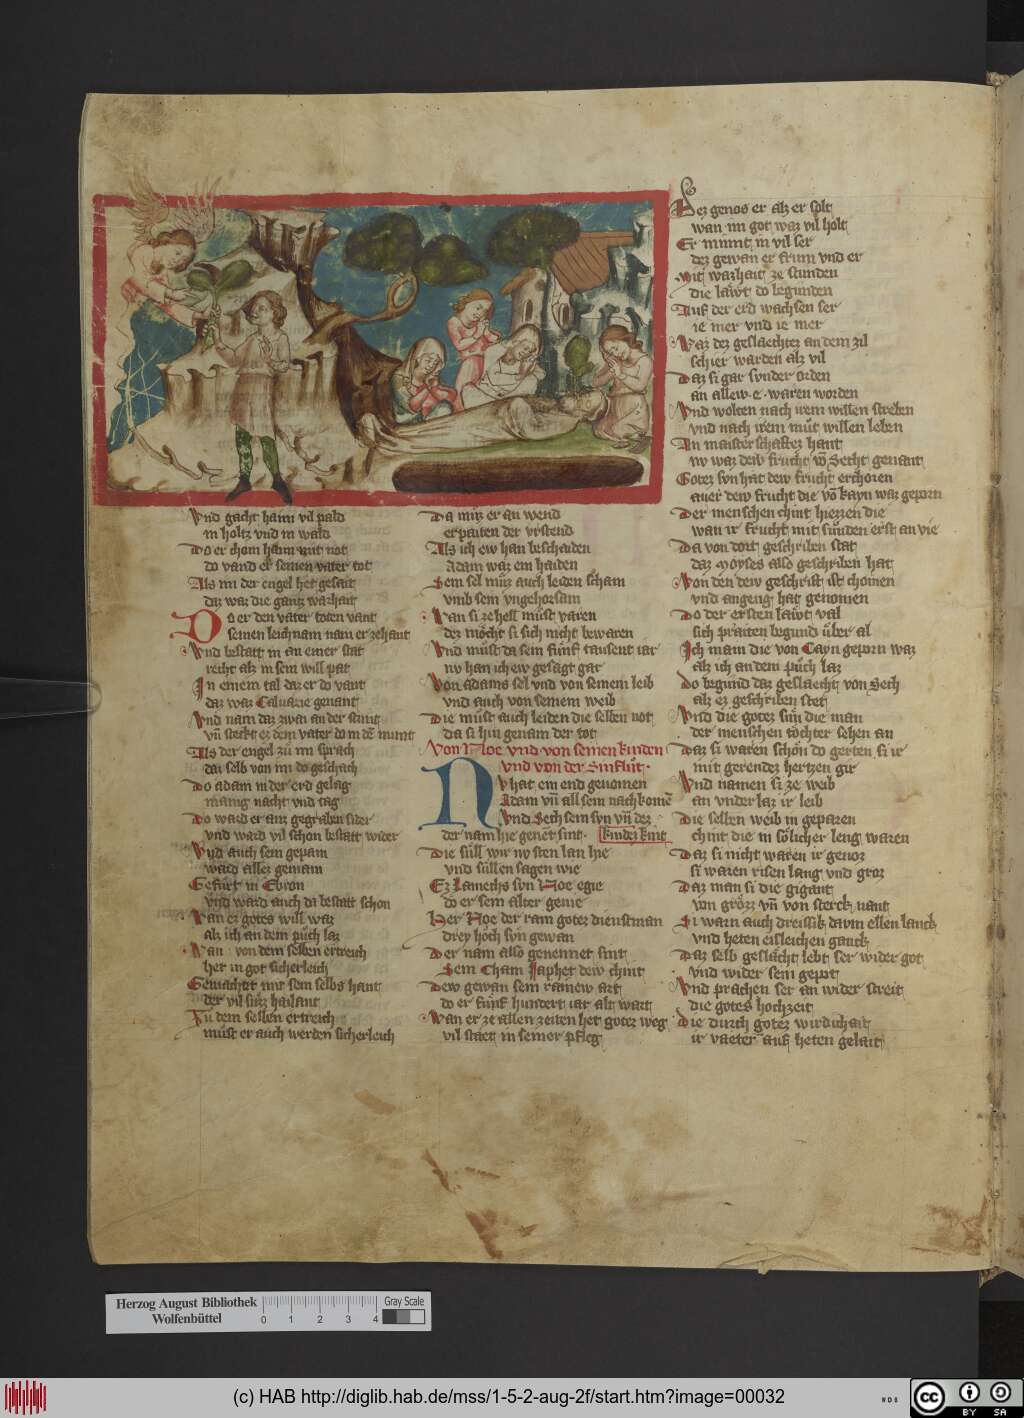 Vnd gacht haim vil pald
in holtz vnd in wald
Do er chom haim mit not
do vand er seinen vater tot
Als im der engel het gesait
daz waz die gantz warhait
Do er den vater toten vant
seinen leichnam nam er zehant
Vnd bestatt in an einer stat
recht alz in sein will pat
In einem tal daz er do vant
daz waz Caluarie genant
Vnd nam daz zwai an der stunt
vn̄ steckt ez dem vater do in dē munt
Als der engel zů im sprach
dai selb von im do geschach
Do adam in der erd gelag
manig nacht vnd tag
Do ward er auz gegraben sider
vnd ward vil schon bestatt wider
Vnd auch sein gepain
ward allez gemain
Gefůrt in Ebron
vnd ward auch da bestatt schon
Wan ez gotes will waz
alz ich an dem půch laz
Wan von dem selben ertreich
het in got sicherleich
Gemachet mit sein selbs hant
der vil sůzz hailant
Zu dem selben ertreich
můst er auch werden sicherleich
Da můz er an wend
erpaiten der vrstend
Als ich ew han beschaiden
Adam waz ein haiden
Sein sel můz auch leiden scham
vmb sein vngehorsam
Wan si ze hell můst varen
dez mőcht si sich nicht bewaren
Vnd můst da sein fůnf tausent iar
nv han ich ew gesagt gar
Von adams sel vnd von seinem leib
vnd auch von seinem weib
Die můst auch leiden die selben not
da si hin genam der tot
Von Noe vnd von seinen kinden
vnd von der Sinflůt
Nv hat ein end genomen
Adam vn̄ all sein nachkomē
Vnd Sech sein syn vn̄ dez
der nam hie genet sint. kindez kint
Die sůll wir nv sten lan hie
vnd sůllen sagen wie
Ez Lamechs syn Noe egie
do er sein alter geuie
Her Noe der rain gotez dienstman
drey hoch syn gewan
Der nam also genennet sint
Sem Cham Japhet dew chint
Dew gewan sein rainew art
do er fůnf hundert iar alt wart
Wan er ze allen zeiten het gotez weg
vil staet in seiner pfleg
Dez genos er alz er solt
wan im got waz vil holt
Er nimt in vil ser
dez gewan er frum vnd er
Mit warhait ze stunden
die lawt do begunden
Auf der erd wachsen ser
ie mer vnd ie mer
Waz dez geslaechtez an dem zil
schier warden alz vil
Daz si gar synder orden
an allew .e. waren worden
Vnd wolten nach irem willen streben
vnd nach irem můt willen leben
An maisterschaftez hant
nv waz dew frucht vō Secht genant
Gotez syn hat dew frucht erchoren
auer dew frucht die vō kayn waz geporn
Der menschen chint hiezzen die
wan ir frucht mit sůnden erst an vie
Da von dort geschriben stat
daz Moyses also geschriben hat
Von den dew geschrift ist chomen
vnd angeng hat genomen
Do der ersten lawt val
sich praiten begund ůber al
Ich main die von Cayn geporn waz
alz ich an dem půch laz
Do begund daz geslaecht von Sech
alz ez geschriben stet
Vnd die gotez sůn die man
der menschen tőchter sehen an
Daz si waren schőn do gerten si ir
mit gerendez hertzen gir
Vnd namen si ze weib
an vnderlaz ir leib
Die selben weib in geparen
chint die in sőlicher leng waren
Daz si nicht waren ir genoz
si waren risen lang vnd groz
Daz man si die gigant
von grőzz vn̄ von sterck nant
Si warn auch dreissik daum ellen lanck
vnd heten eisleichen ganck
Daz selb geslächt lebt ser wider got
vnd wider sein gepot
Vnd prachen ser an wider streit
die gotes hochzeit
Die durch gotez wirdichait
ir vaeter auf heten gelait
Herzog August Bibliothek
Wolfenbüttel
0 1 2 3 4
Gray Scale
(c) HAB http://diglib.hab.de/mss/1-5-2-aug-2f/start.htm?image=00032
cc BY SA